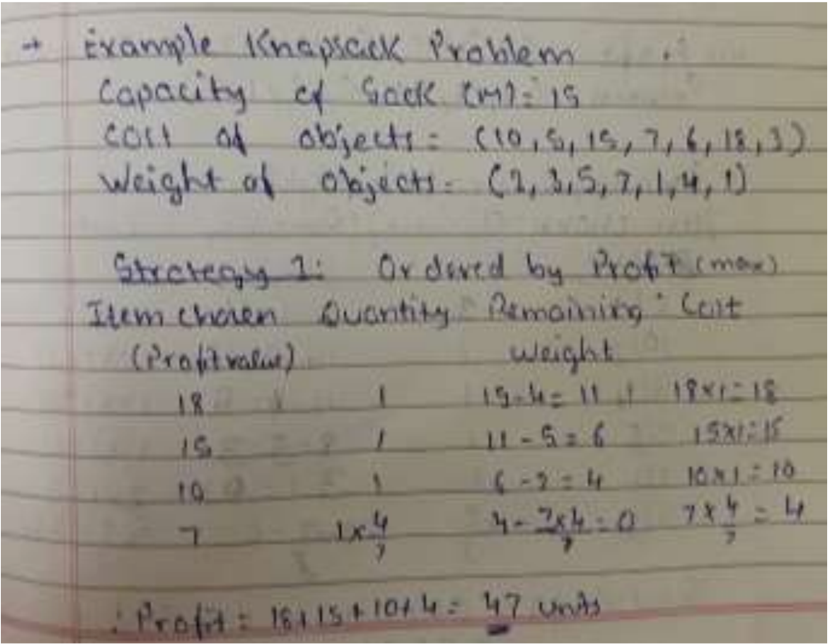 → Example Knapsack Problem
Capacity of Sack (M) = 15
Cost of objects = (10, 5, 15, 7, 6, 18, 3)
Weight of objects = (2, 3, 5, 7, 1, 4, 1)
Strategy 1: Ordered by Profit (max)
Item chosen Quantity Remaining Cost
(Profit value) Weight
18 1 15-4= 11 18x1=18
15 1 11-5=6 15x1=15
10 1 6-2=4 10x1=10
7 1x4/7 4-7x4/7=0 7x4/7=4
∴ Profit = 18+15+10+4= 47 units